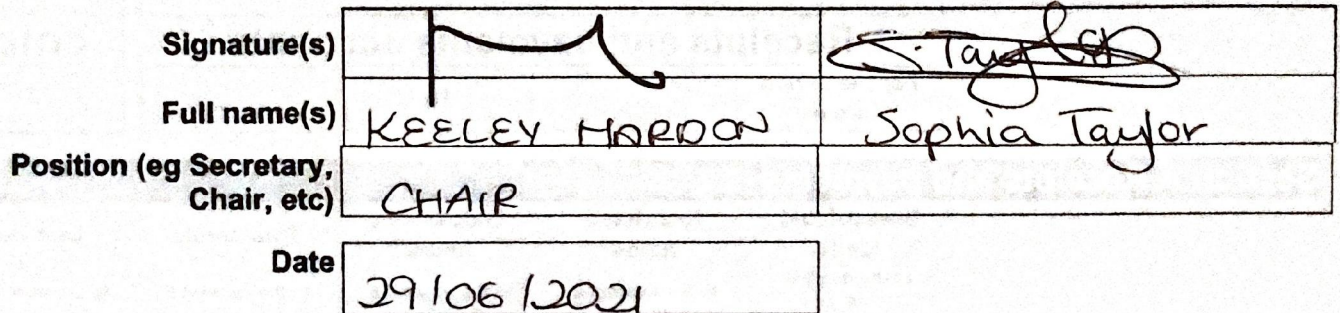 Signature(s) S. Taylor
Full name(s) KEELEY HARDON Sophia Taylor
Position (eg Secretary,
Chair, etc) CHAIR
Date 29/06/2021